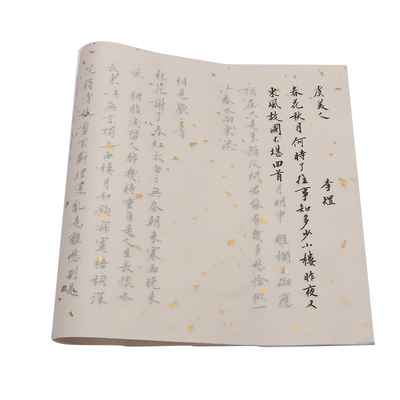 虞美人
李煜
春花秋月何時了往事知多少小樓昨夜又
東風故國不堪回首月明中 雕欄玉砌應
猶在只是朱顏改問君能有幾多愁恰似一
江春水向東流
相見歡 首
林花謝了春紅太匆匆無奈朝來寒雨晚來
風 胭脂淚留人醉幾時重自是人生長恨水
長東 無言獨上西樓月如鉤寂寞梧桐深
院鎖清秋剪不斷理還亂是離愁別是